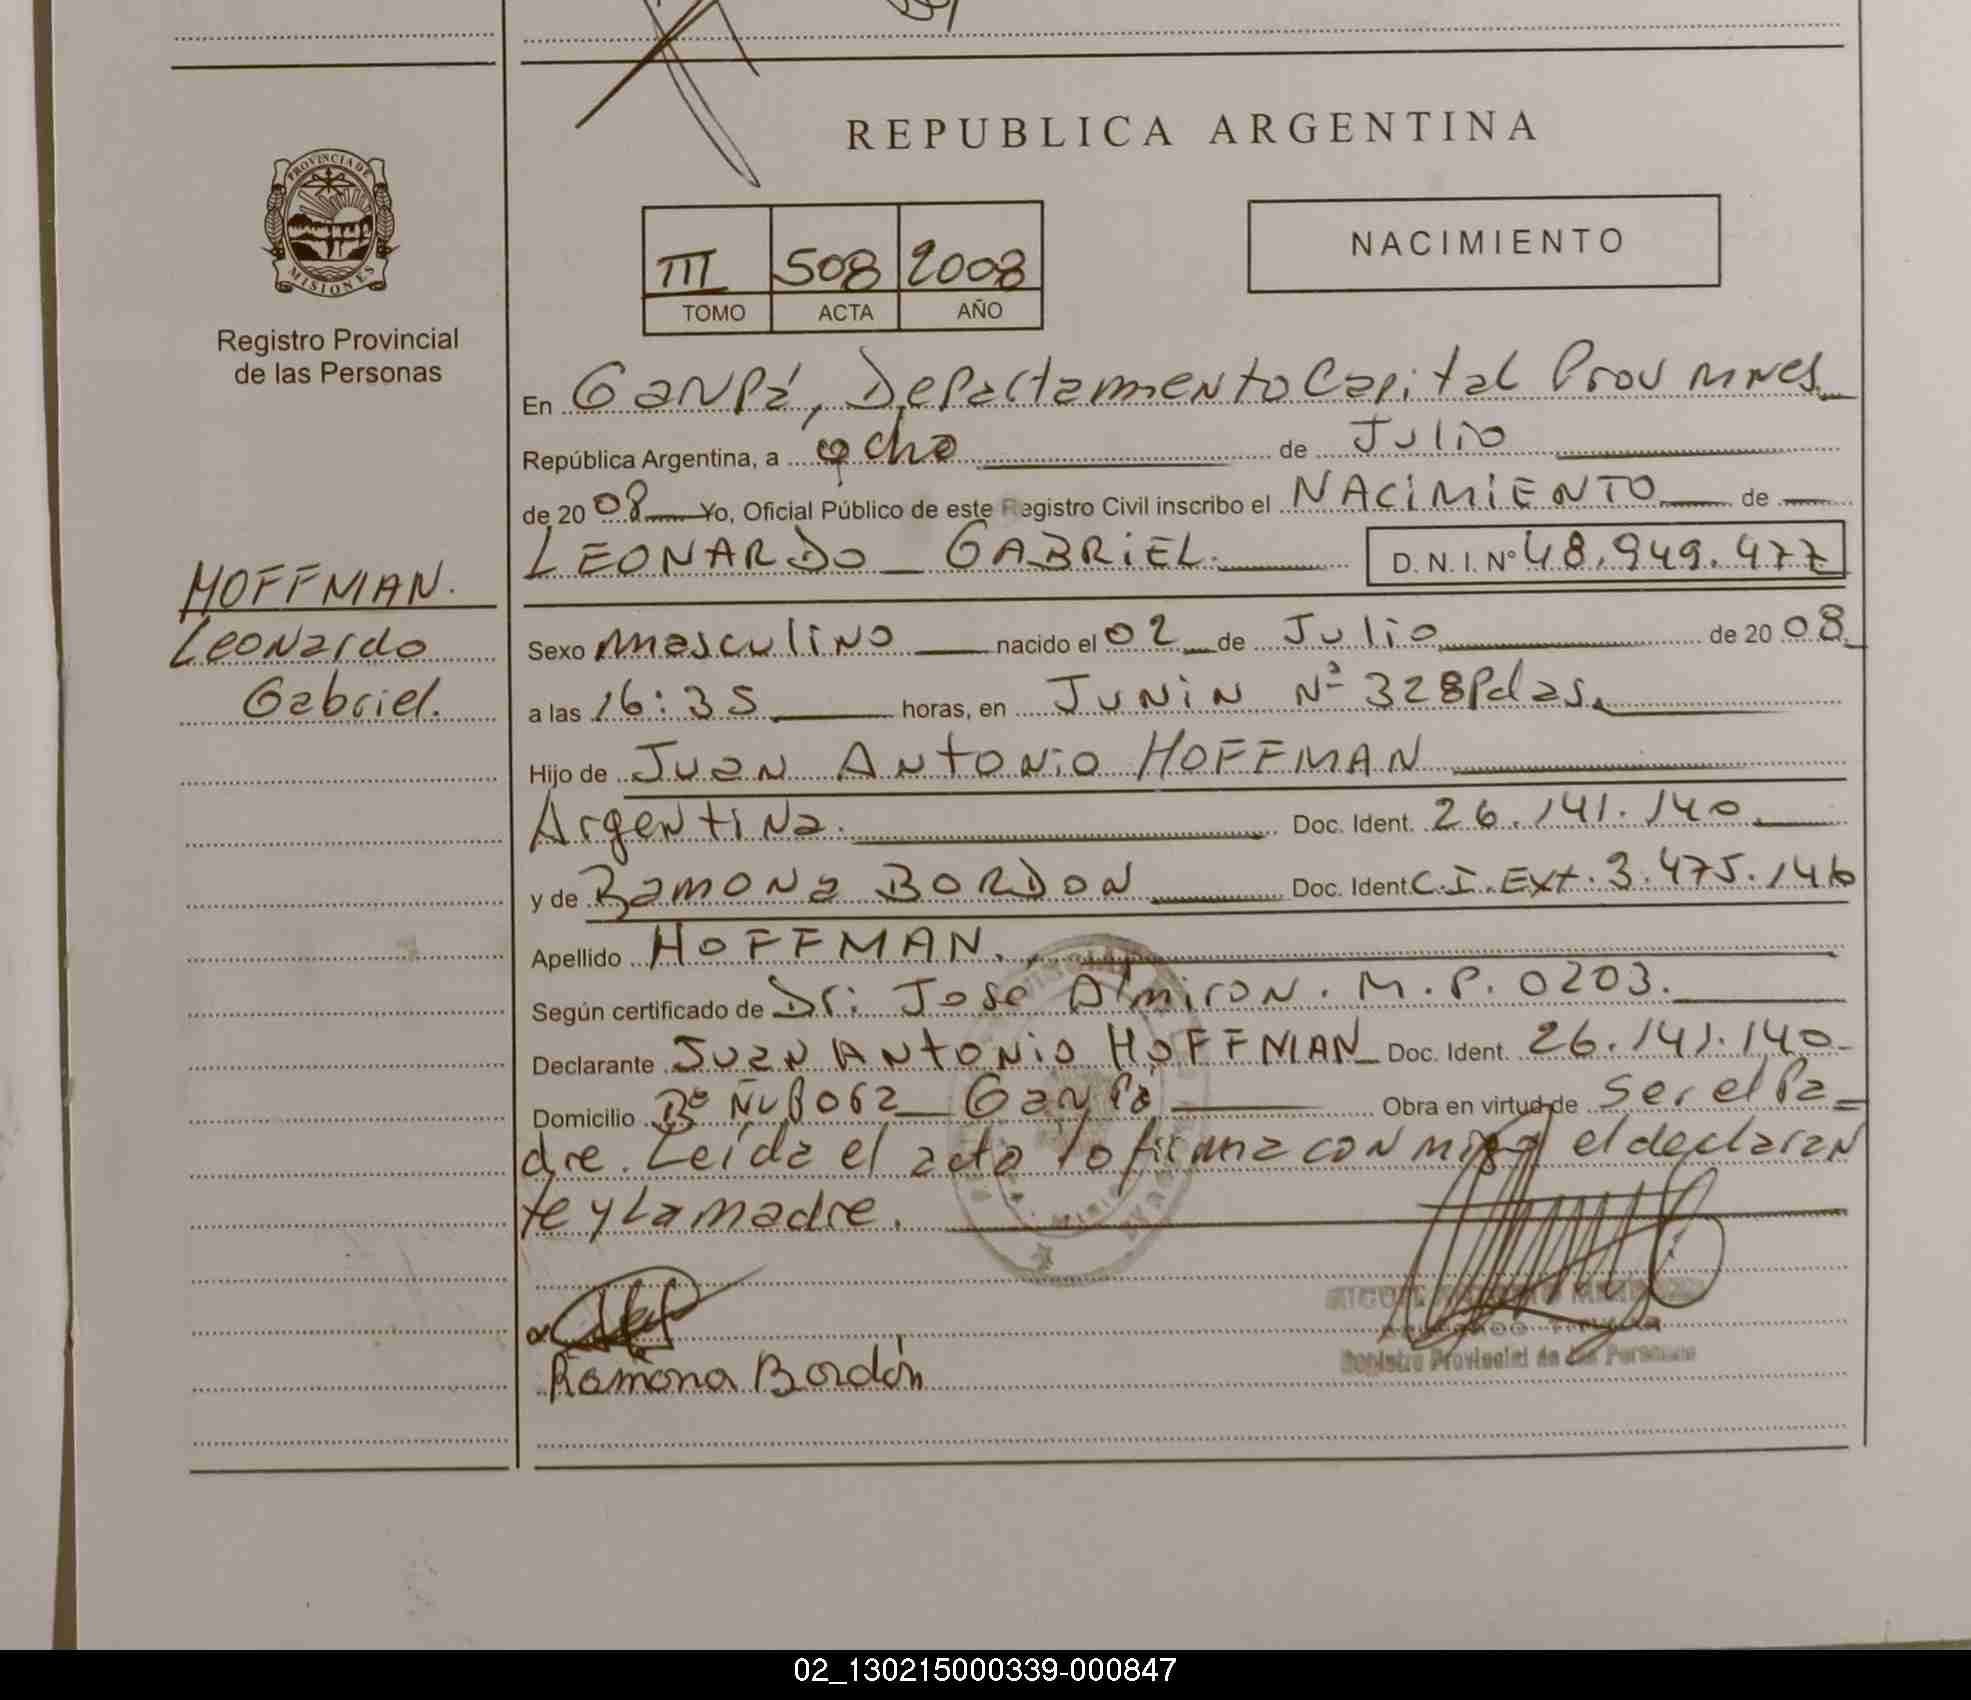 REPUBLICA ARGENTINA
PROVINCIA DE
MISIONES
Registro Provincial
de las Personas
III 508 2008
TOMO ACTA AÑO
NACIMIENTO
En Ganpá, Departamento Capital Prov Mnes
República Argentina, a ocho de Julio
de 2008 Yo, Oficial Público de este Registro Civil inscribo el NACIMIENTO de
LEONARDO GABRIEL. D.N.I. Nº 48.949.477
HOFFMAN.
Leonardo
Gabriel.
Sexo masculino nacido el 02 de Julio de 2008
a las 16:35 horas, en JUNIN Nº 328 Pdas.
Hijo de Juan Antonio HOFFMAN
Argentina. Doc. Ident. 26.141.140
y de Ramona BORDON Doc. Ident C.I. Ext. 3.475.146
Apellido HOFFMAN.
Según certificado de Dr: Jose Almiron. M.P. 0203.
Declarante Juan Antonio HOFFMAN Doc. Ident. 26.141.140
Domicilio Bº Ganpá Obra en virtud de ser el Pa
dre. Leída el acta la firma conmigo el declaran
te y La madre.
Ramona Bordón
Registro Provincial de las Personas
02_130215000339-000847